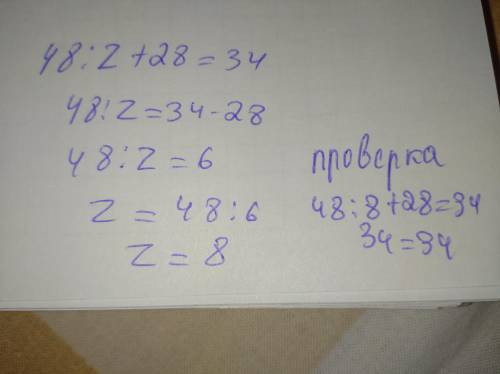 48:z+28=34
48:z=34-28
48:z=6
z=48:6
z=8
проверка
48:8+28=34
34=34